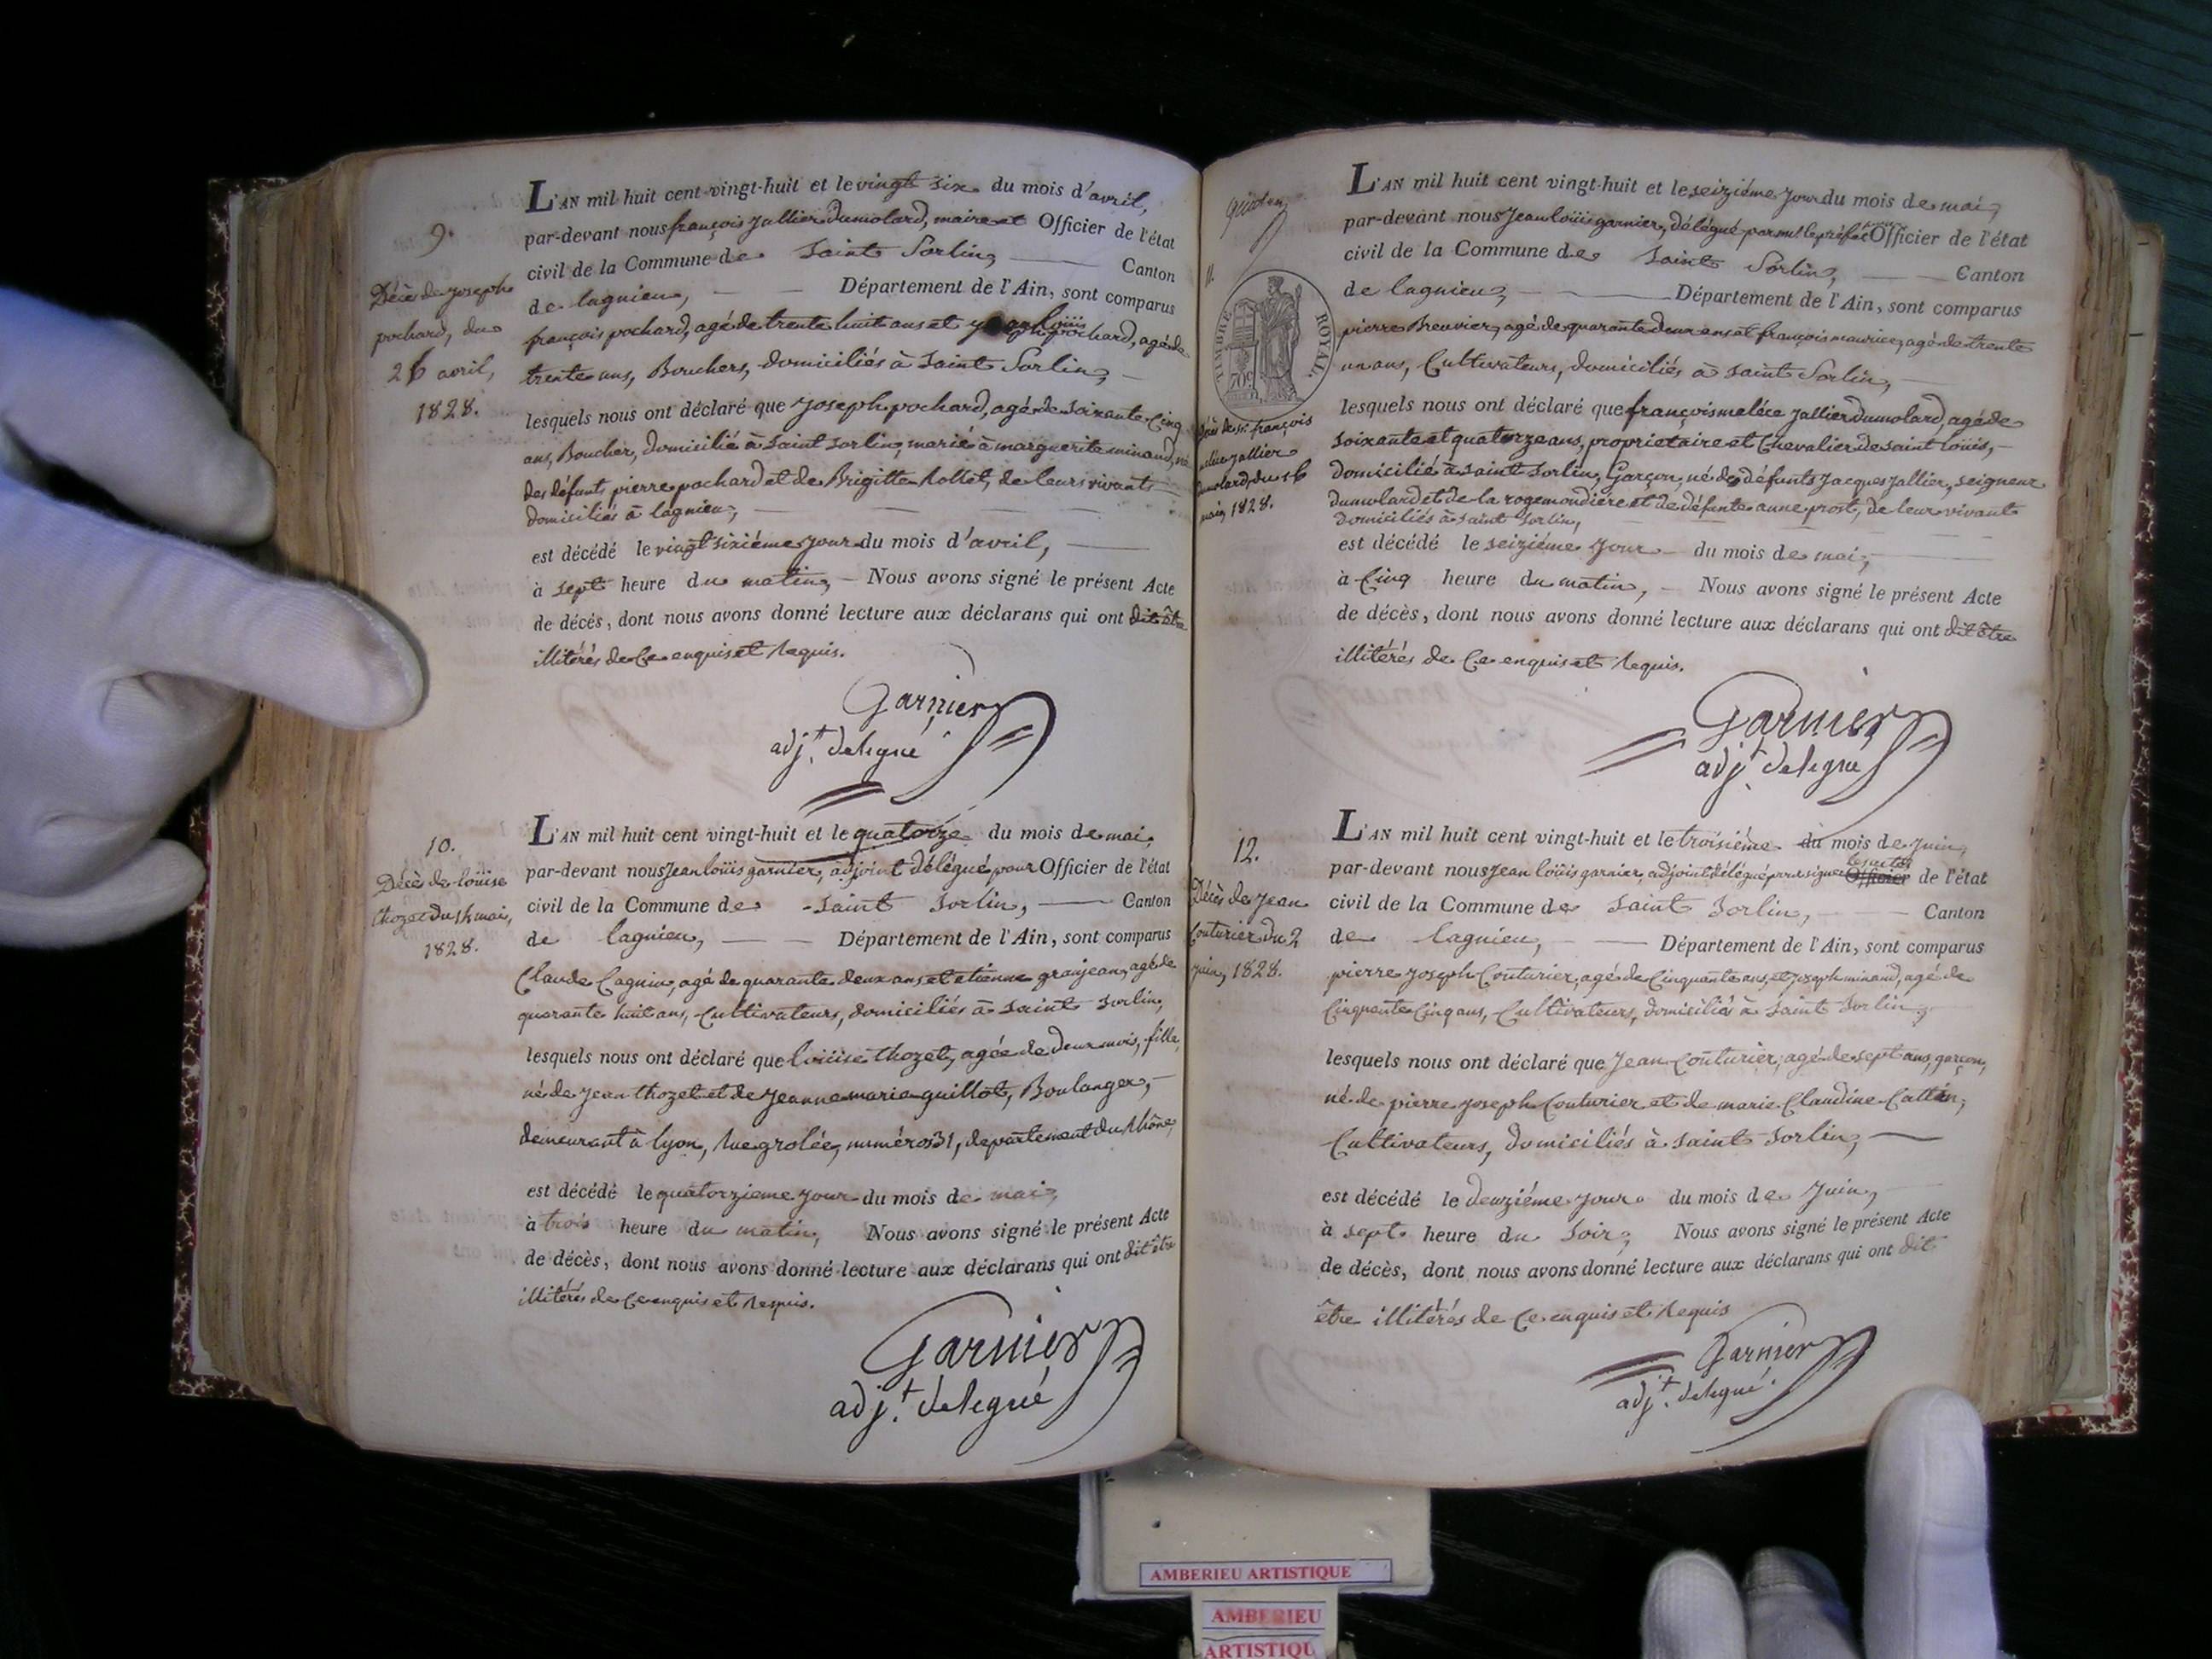 9.
Décès de Joseph
pochard, du
26 avril,
1828.
L'AN mil huit cent vingt-huit et le vingt six du mois d'avril,
par-devant nous françois Jallier dumolard, maire et Officier de l'état
civil de la Commune de Saint Sorlin, Canton
de lagnieu, Département de l'Ain, sont comparus
françois pochard, agé de trente huit ans et louis pochard, agé de
trente ans, Bouchers, domiciliés à Saint Sorlin,
lesquels nous ont déclaré que Joseph pochard, agé de soixante Cinq
ans, Boucher, domicilié à Saint Sorlin, marié à marguerite minand, né
des défunts pierre pochard et de Brigitte Rollet, de leurs vivants
domiciliés à lagnieu,
est décédé le vingt sixiéme Jour du mois d'avril,
à sept heure du matin, Nous avons signé le présent Acte
de décès, dont nous avons donné lecture aux déclarans qui ont dit être
illitérés de Ce enquis et Requis.
Garnier
adj.t delegué
10.
Décès de loüise
thozet du 14 mai,
1828.
L'AN mil huit cent vingt-huit et le quatorze du mois de mai,
par-devant nous Jean loüis garnier, adjoint délégué pour Officier de l'état
civil de la Commune de Saint Sorlin, Canton
de lagnieu, Département de l'Ain, sont comparus
Claude Cagnin, agé de quarante deux ans et etienne granjean, agé de
quarante huit ans, Cultivateurs, domiciliés à Saint Sorlin,
lesquels nous ont déclaré que loüise thozet, agée de deux mois, fille,
né de Jean thozet et de Jeanne marie guillot, Boulanger,
demeurant à lyon, Rue grolée, numéros 31, departement du Rhône,
est décédé le quatorzieme Jour du mois de mai,
à trois heure du matin, Nous avons signé le présent Acte
de décès, dont nous avons donné lecture aux déclarans qui ont dit être
illitérés de Ce enquis et Requis.
Garnier
adj.t delegué
11.
TIMBRE ROYAL
70c
Décès de sr. françois
Jallier
dumolard, du 16
mai, 1828.
L'AN mil huit cent vingt-huit et le seiziéme Jour du mois de mai,
par-devant nous Jean loüis garnier, délégué par mr. le préfet Officier de l'état
civil de la Commune de Saint Sorlin, Canton
de lagnieu, Département de l'Ain, sont comparus
pierre Breuvier, agé de quarante deux ans et françois maurice, agé de trente
un ans, Cultivateurs, domiciliés à Saint Sorlin,
lesquels nous ont déclaré que françois meléce Jallier dumolard, agé de
soixante et quatorze ans, proprietaire et Chevalier de saint loüis,
domicilié à Saint Sorlin, Garçon, né des défunts Jacques Jallier, seigneur
dumolard et de la rogemondiere et de défunte anne prost, de leur vivant
domiciliés à Saint Sorlin,
est décédé le seiziéme Jour du mois de mai,
à Cinq heure du matin, Nous avons signé le présent Acte
de décès, dont nous avons donné lecture aux déclarans qui ont dit être
illitérés de Ce enquis et Requis.
Garnier
adj.t delegué
12.
Décès de Jean
Couturier du 2
Juin, 1828.
L'AN mil huit cent vingt-huit et le troisiéme du mois de Juin,
par-devant nous Jean loüis garnier, adjoint délégué pour signer les actes Officier de l'état
civil de la Commune de Saint Sorlin, Canton
de lagnieu, Département de l'Ain, sont comparus
pierre Joseph Couturier, agé de Cinquante ans, et Joseph minand, agé de
Cinquente Cinq ans, Cultivateurs, domiciliés à Saint Sorlin,
lesquels nous ont déclaré que Jean Couturier, agé de sept ans, garçon,
né de pierre Joseph Couturier et de marie Claudine Cattin,
Cultivateurs, domiciliés à Saint Sorlin,
est décédé le deuziéme Jour du mois de Juin,
à sept heure du Soir, Nous avons signé le présent Acte
de décès, dont nous avons donné lecture aux déclarans qui ont dit
être illitérés de Ce enquis et Requis
Garnier
adj.t delegué
AMBERIEU ARTISTIQUE
AMBERIEU
ARTISTIQU